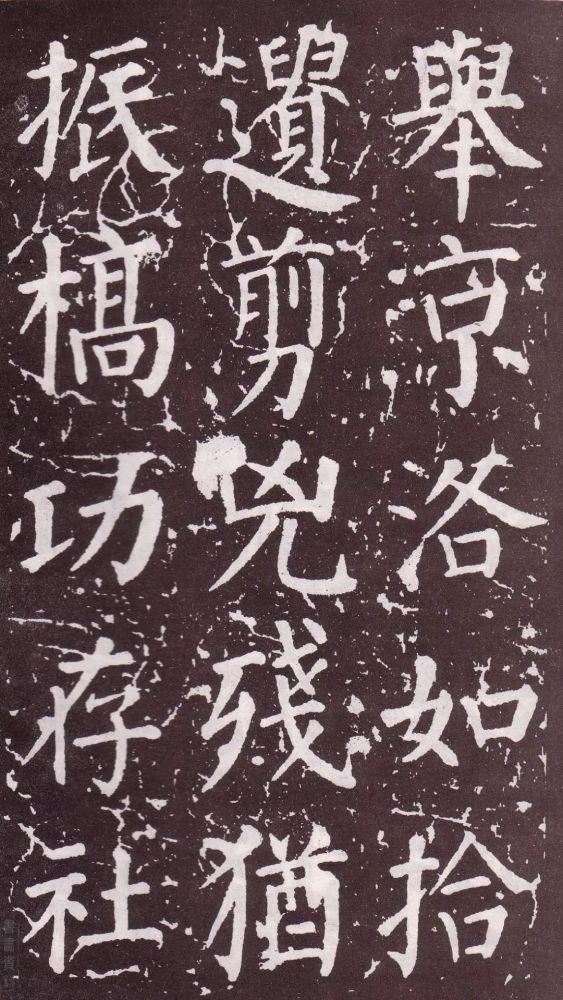 舉京洛如拾
遺剪兇殘猶
振槁功存社